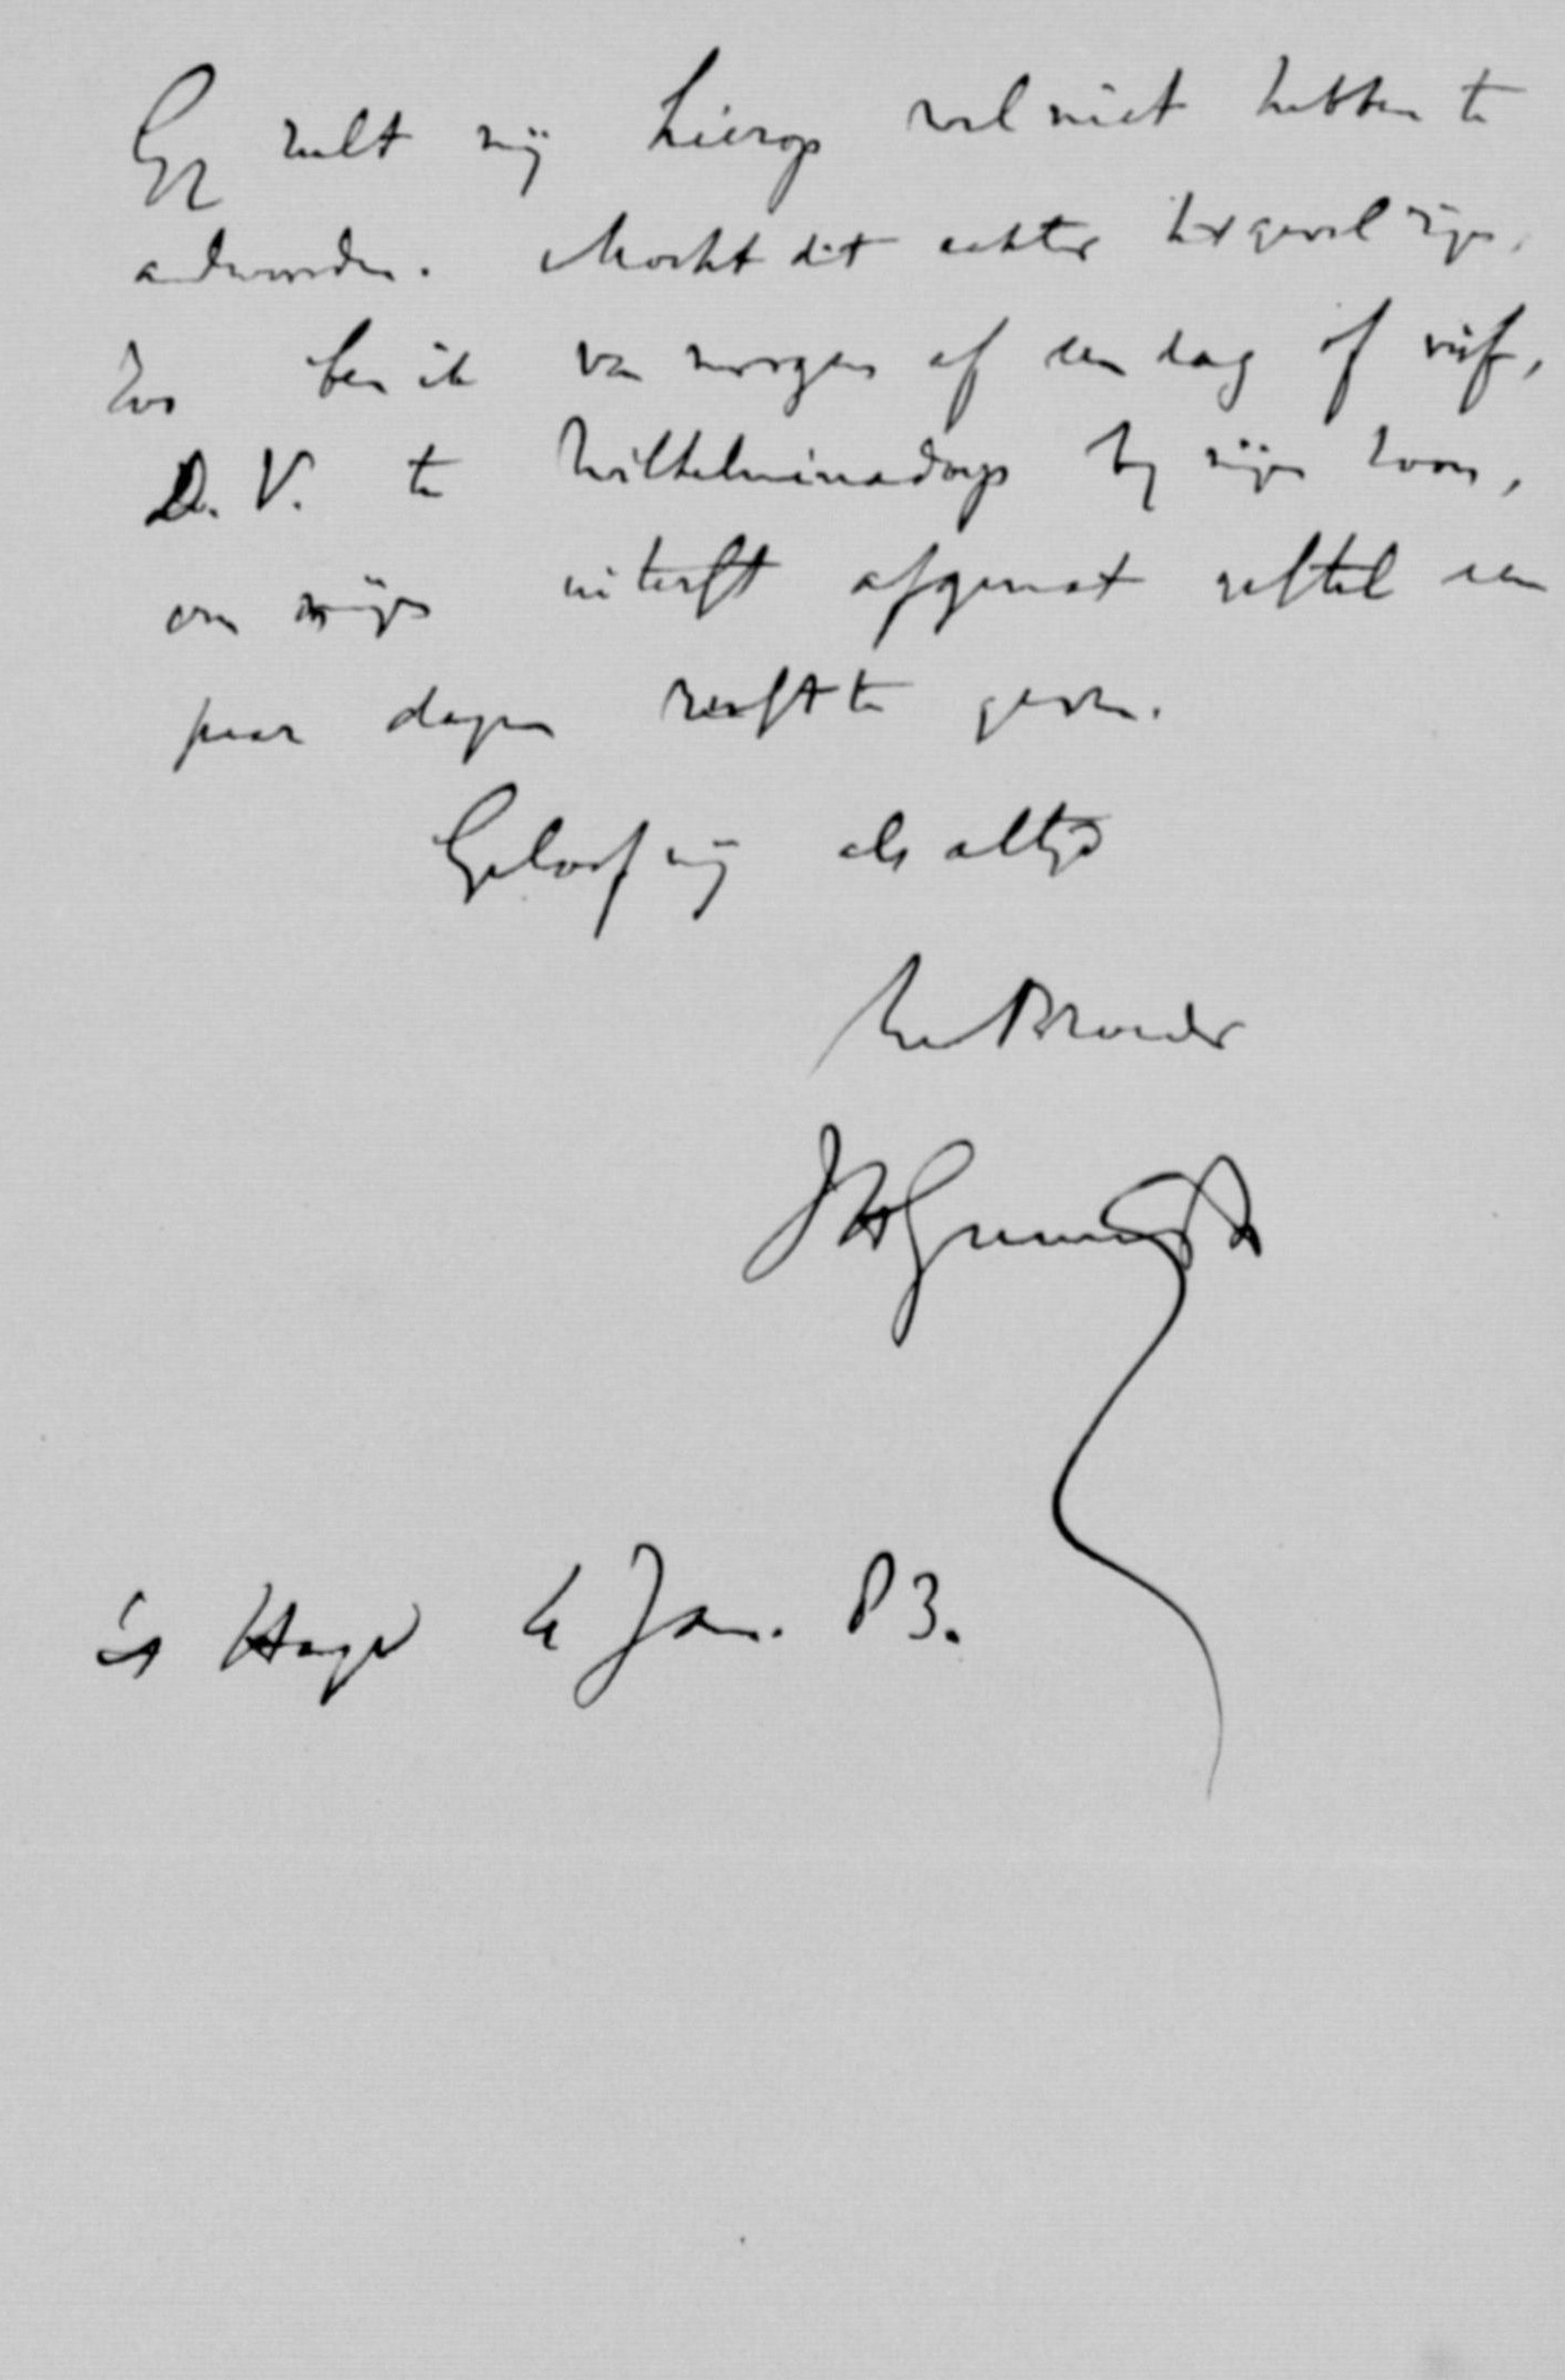 Gij zult mij hierop wel niet hebben te
antwoorden. Mocht dit echter het geval zijn,
Zoo ben ik van morgen af een dag of vijf,
D. V. te Wilhelminadorp bij mijn zoon,
om mijn uiterst afgemat gestel een
paar dagen rust te geven.
Geloof mij als altijd
Uw Broeder
JHGunning
's Hage 4 Jan. 83.